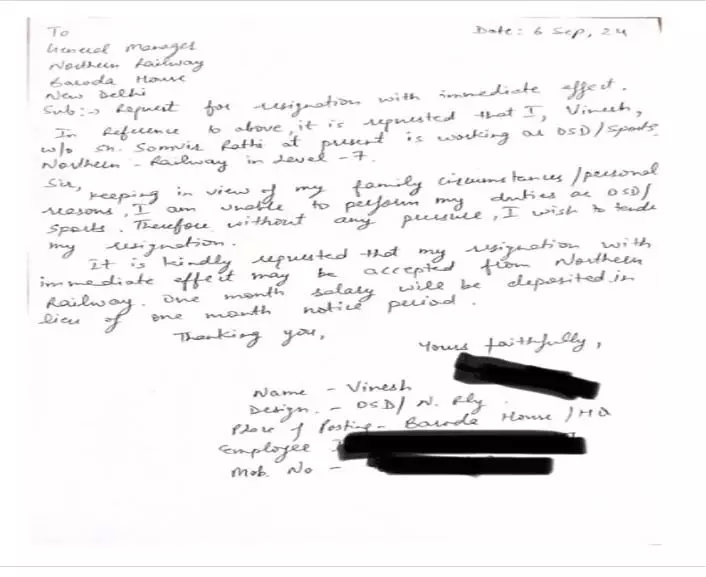 To
Date: 6 Sep, 24
General Manager
Northern Railway
Baroda House
New Delhi
Sub:→ Request for resignation with immediate effect.
In Reference to above, it is requested that I, Vinesh,
w/o Sh. Somvir Rathi at present is working as OSD/Sports
Northern - Railway in Level -7.
Sir,
Keeping in view of my family circumstances/personal
reasons, I am unable to perform my duties as OSD/
Sports. Therefore without any pressure, I wish to tende
my resignation.
It is kindly requested that my resignation with
immediate effect may be accepted from Northern
Railway. One month salary will be deposited in
lieu of one month notice period.
Thanking you,
Yours faithfully,
Name - Vinesh
Design. - OSD/ N. Rly.
Place of Posting- Baroda House /HQ
Employee
Mob. No -